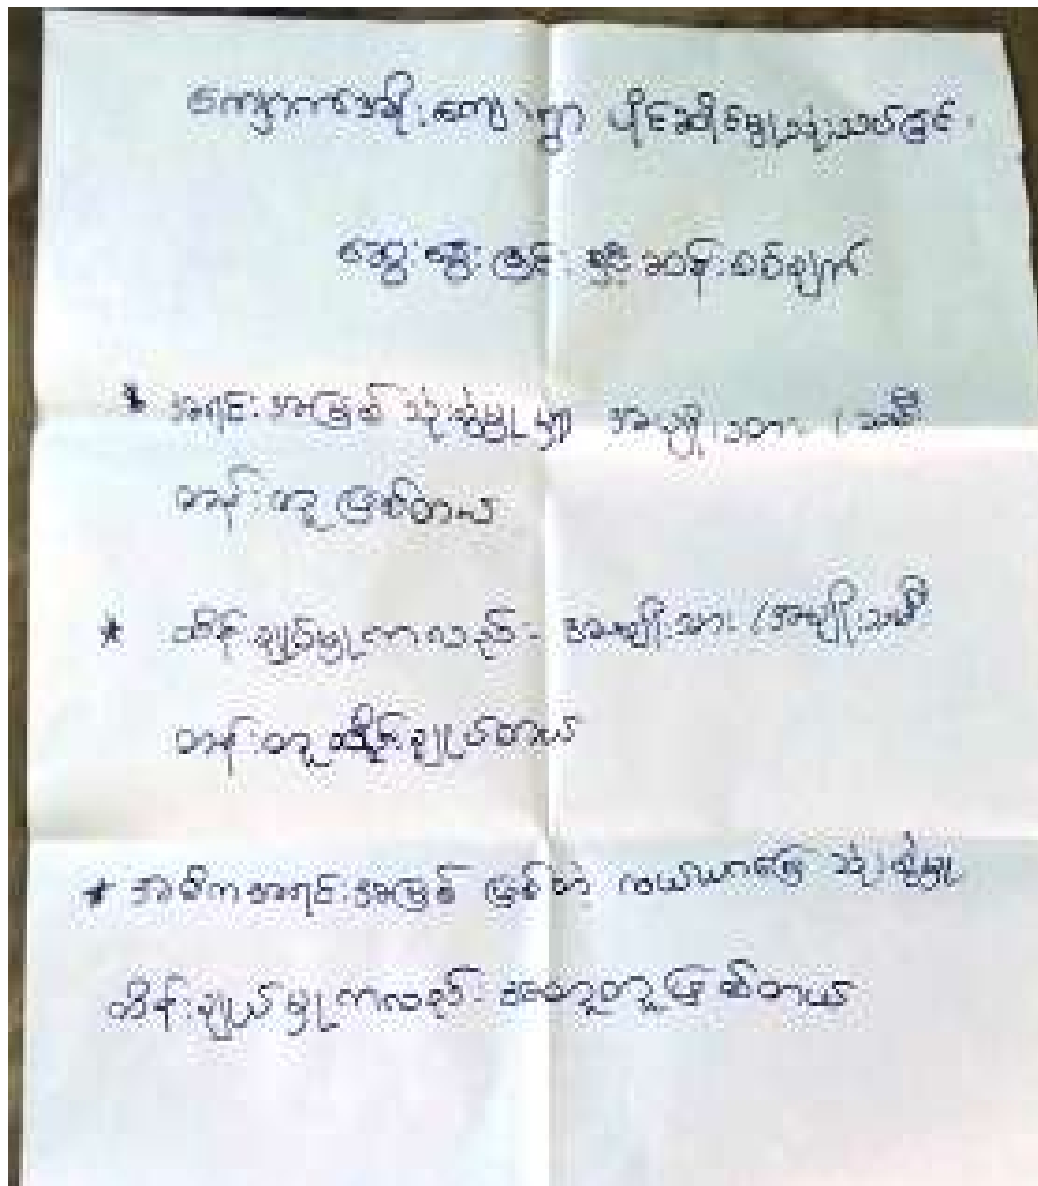 ကျောက်အိုးကျေးရွာ ပိုင်ဆိုင်မှုသုံးသပ်ခြင်း
ဆွေးနွေးခြင်း နှင့် ဆန်းစစ်ချက်
* အရင်းအမြစ် သုံးစွဲမှုမှာ အမျိုးသား / သမီး
တန်းတူ ဖြစ်တယ်
* ထိန်းချုပ်မှုကလည်း အမျိုးသား / အမျိုးသမီး
တန်းတူ ထိန်းချုပ်တယ်
* အဓိကအရင်းအမြစ် ဖြစ်တဲ့ လယ်ယာမြေ သုံးစွဲမှု
ထိန်းချုပ်မှုကလည်း အတူတူဖြစ်တယ်